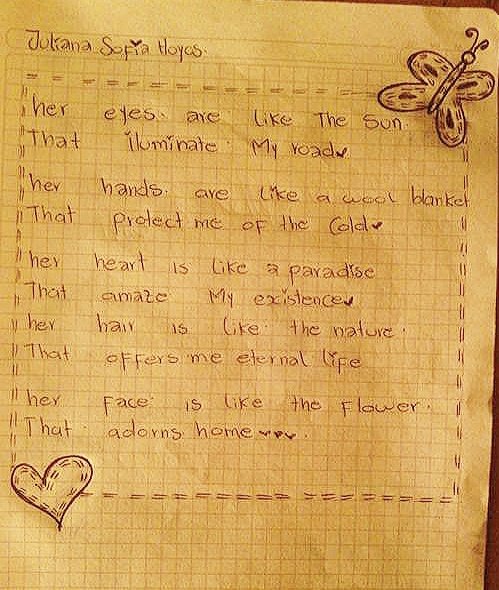 Juliana Sofia Hoyos.
her eyes. are like The Sun.
That iluminate. My road
her hands. are like a wool blanket
That protect me of the Cold
her heart is like a paradise
That amaze My existence
her hair is like. the nature.
That offers me eternal life
her Face is like the Flower.
That. adorns home.